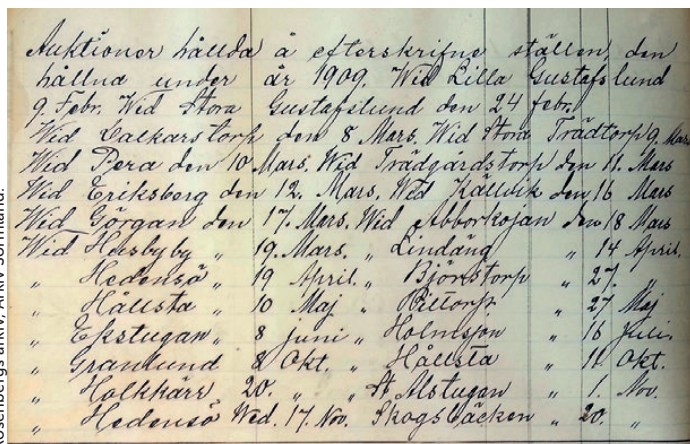 Auktioner hållda å efterskrifne ställen, den
hållna under år 1909. Wid Lilla Gustafslund
9. Febr. Wid Stora Gustafslund den 24 febr.
Wid Lalkarstorp den 8 Mars. Wid Stora Trädtorp 9. Mars
Wid Pera den 10 Mars. Wid Trädgårdstorp den 11. Mars
Wid Eriksberg den 12. Mars. Wid Källvik den 16 Mars
Wid Görgan den 17. Mars. Wid Abborkojan den 18 Mars
Wid Husbyby „ 19. Mars. „ Lindäng „ 14 April.
„ Hedensö „ 19 April. „ Björstorp „ 27. „
„ Hållsta „ 10 Maj „ Pittorp „ 27 Maj
„ Ekstugan „ 8 juni „ Holmsjön „ 16 juli.
„ Granlund 8 Okt. „ Hållsta „ 11. Okt.
„ Holkkärr 20. „ „ Alstugan „ 1. Nov.
„ Hedensö Wed. 17. Nov. Skogsbäcken „ 20. „
Rosenbergs arkiv, Arkiv Sörmland.